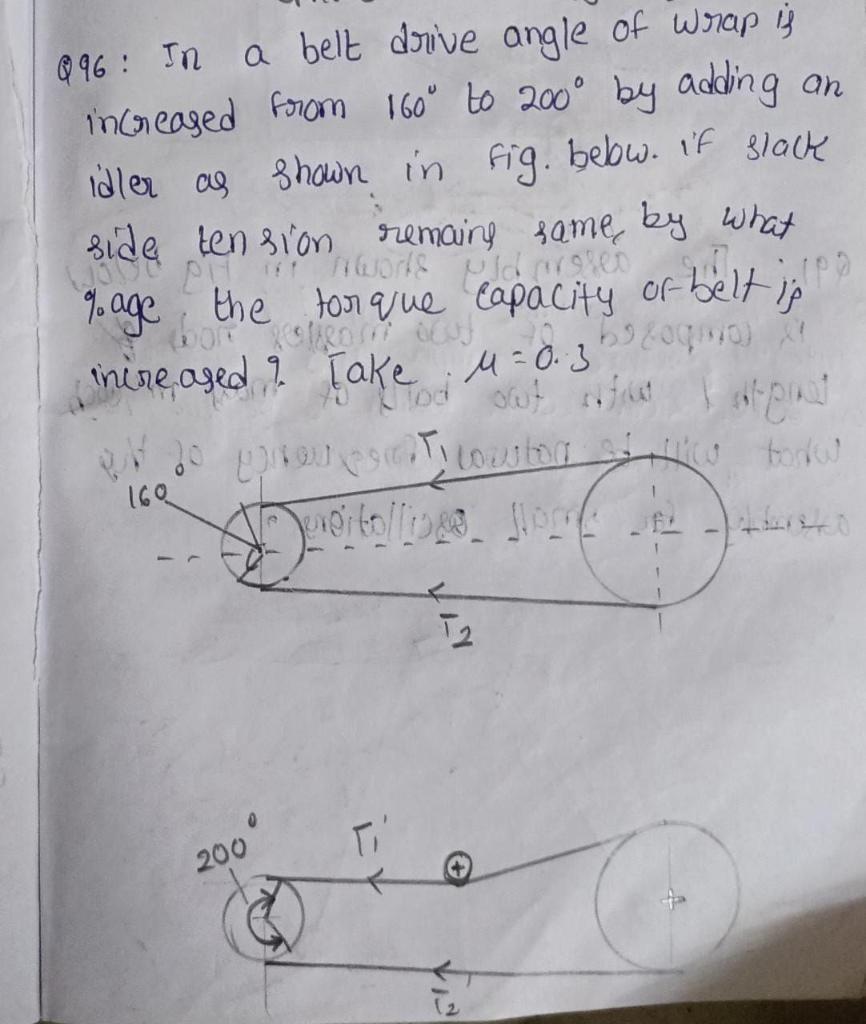 Q96: In a belt drive angle of wrap is
increased from 160° to 200° by adding an
idler as shown in fig. below. if slack
side tension remains same, by what
%age the torque capacity of belt is
increased? Take μ = 0.3
T1
160°
T2
200°
T1'
T2